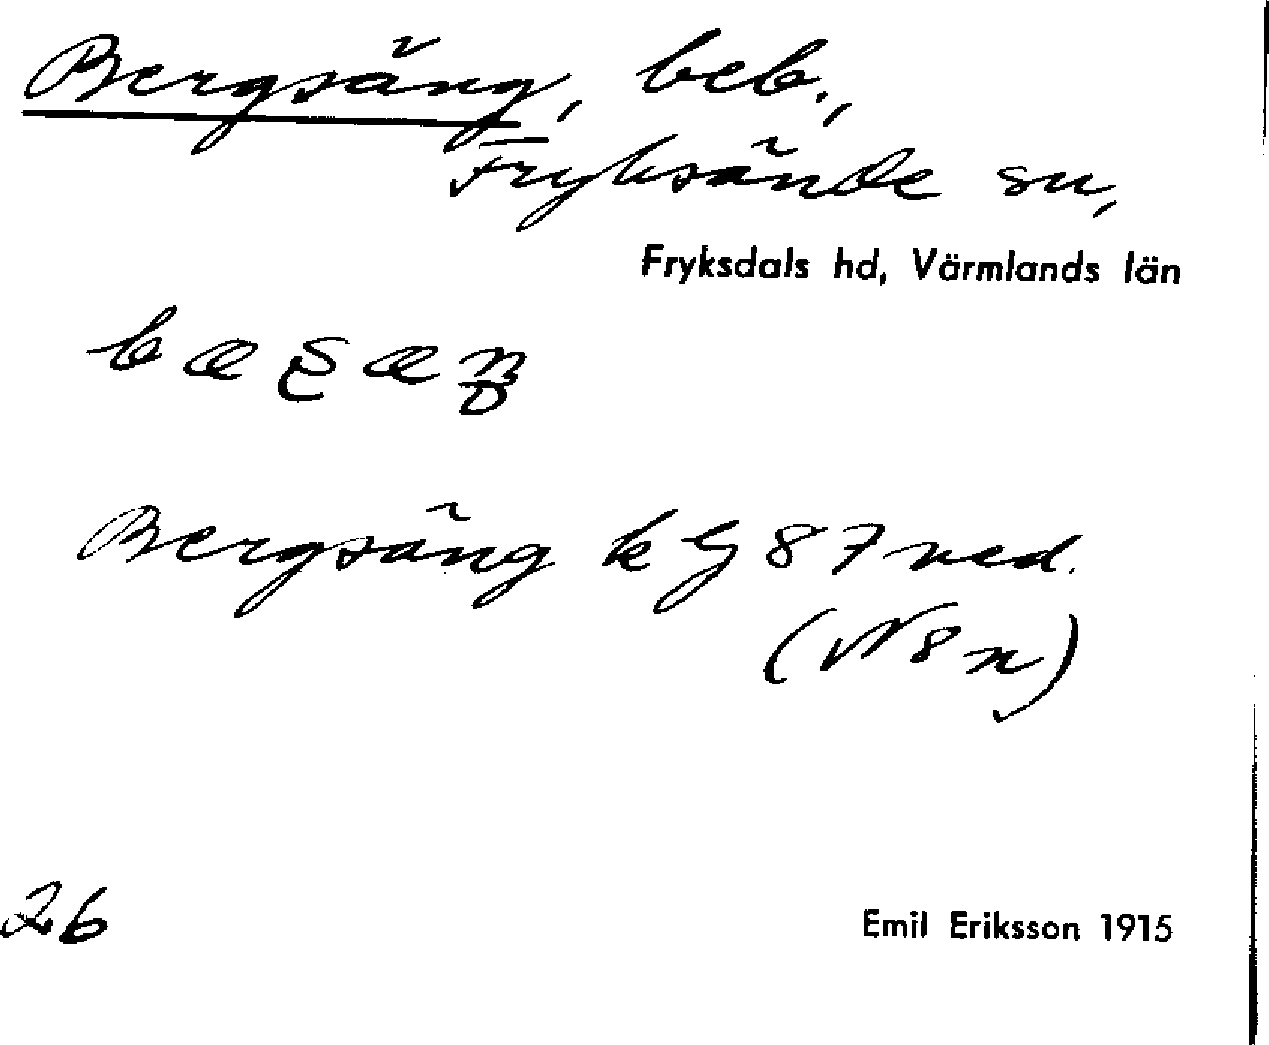 Bergsäng, beb.,
Fryksände sn,
Fryksdals hd, Värmlands län
Bergsäng
(NSn)
26
Emil Eriksson 1915